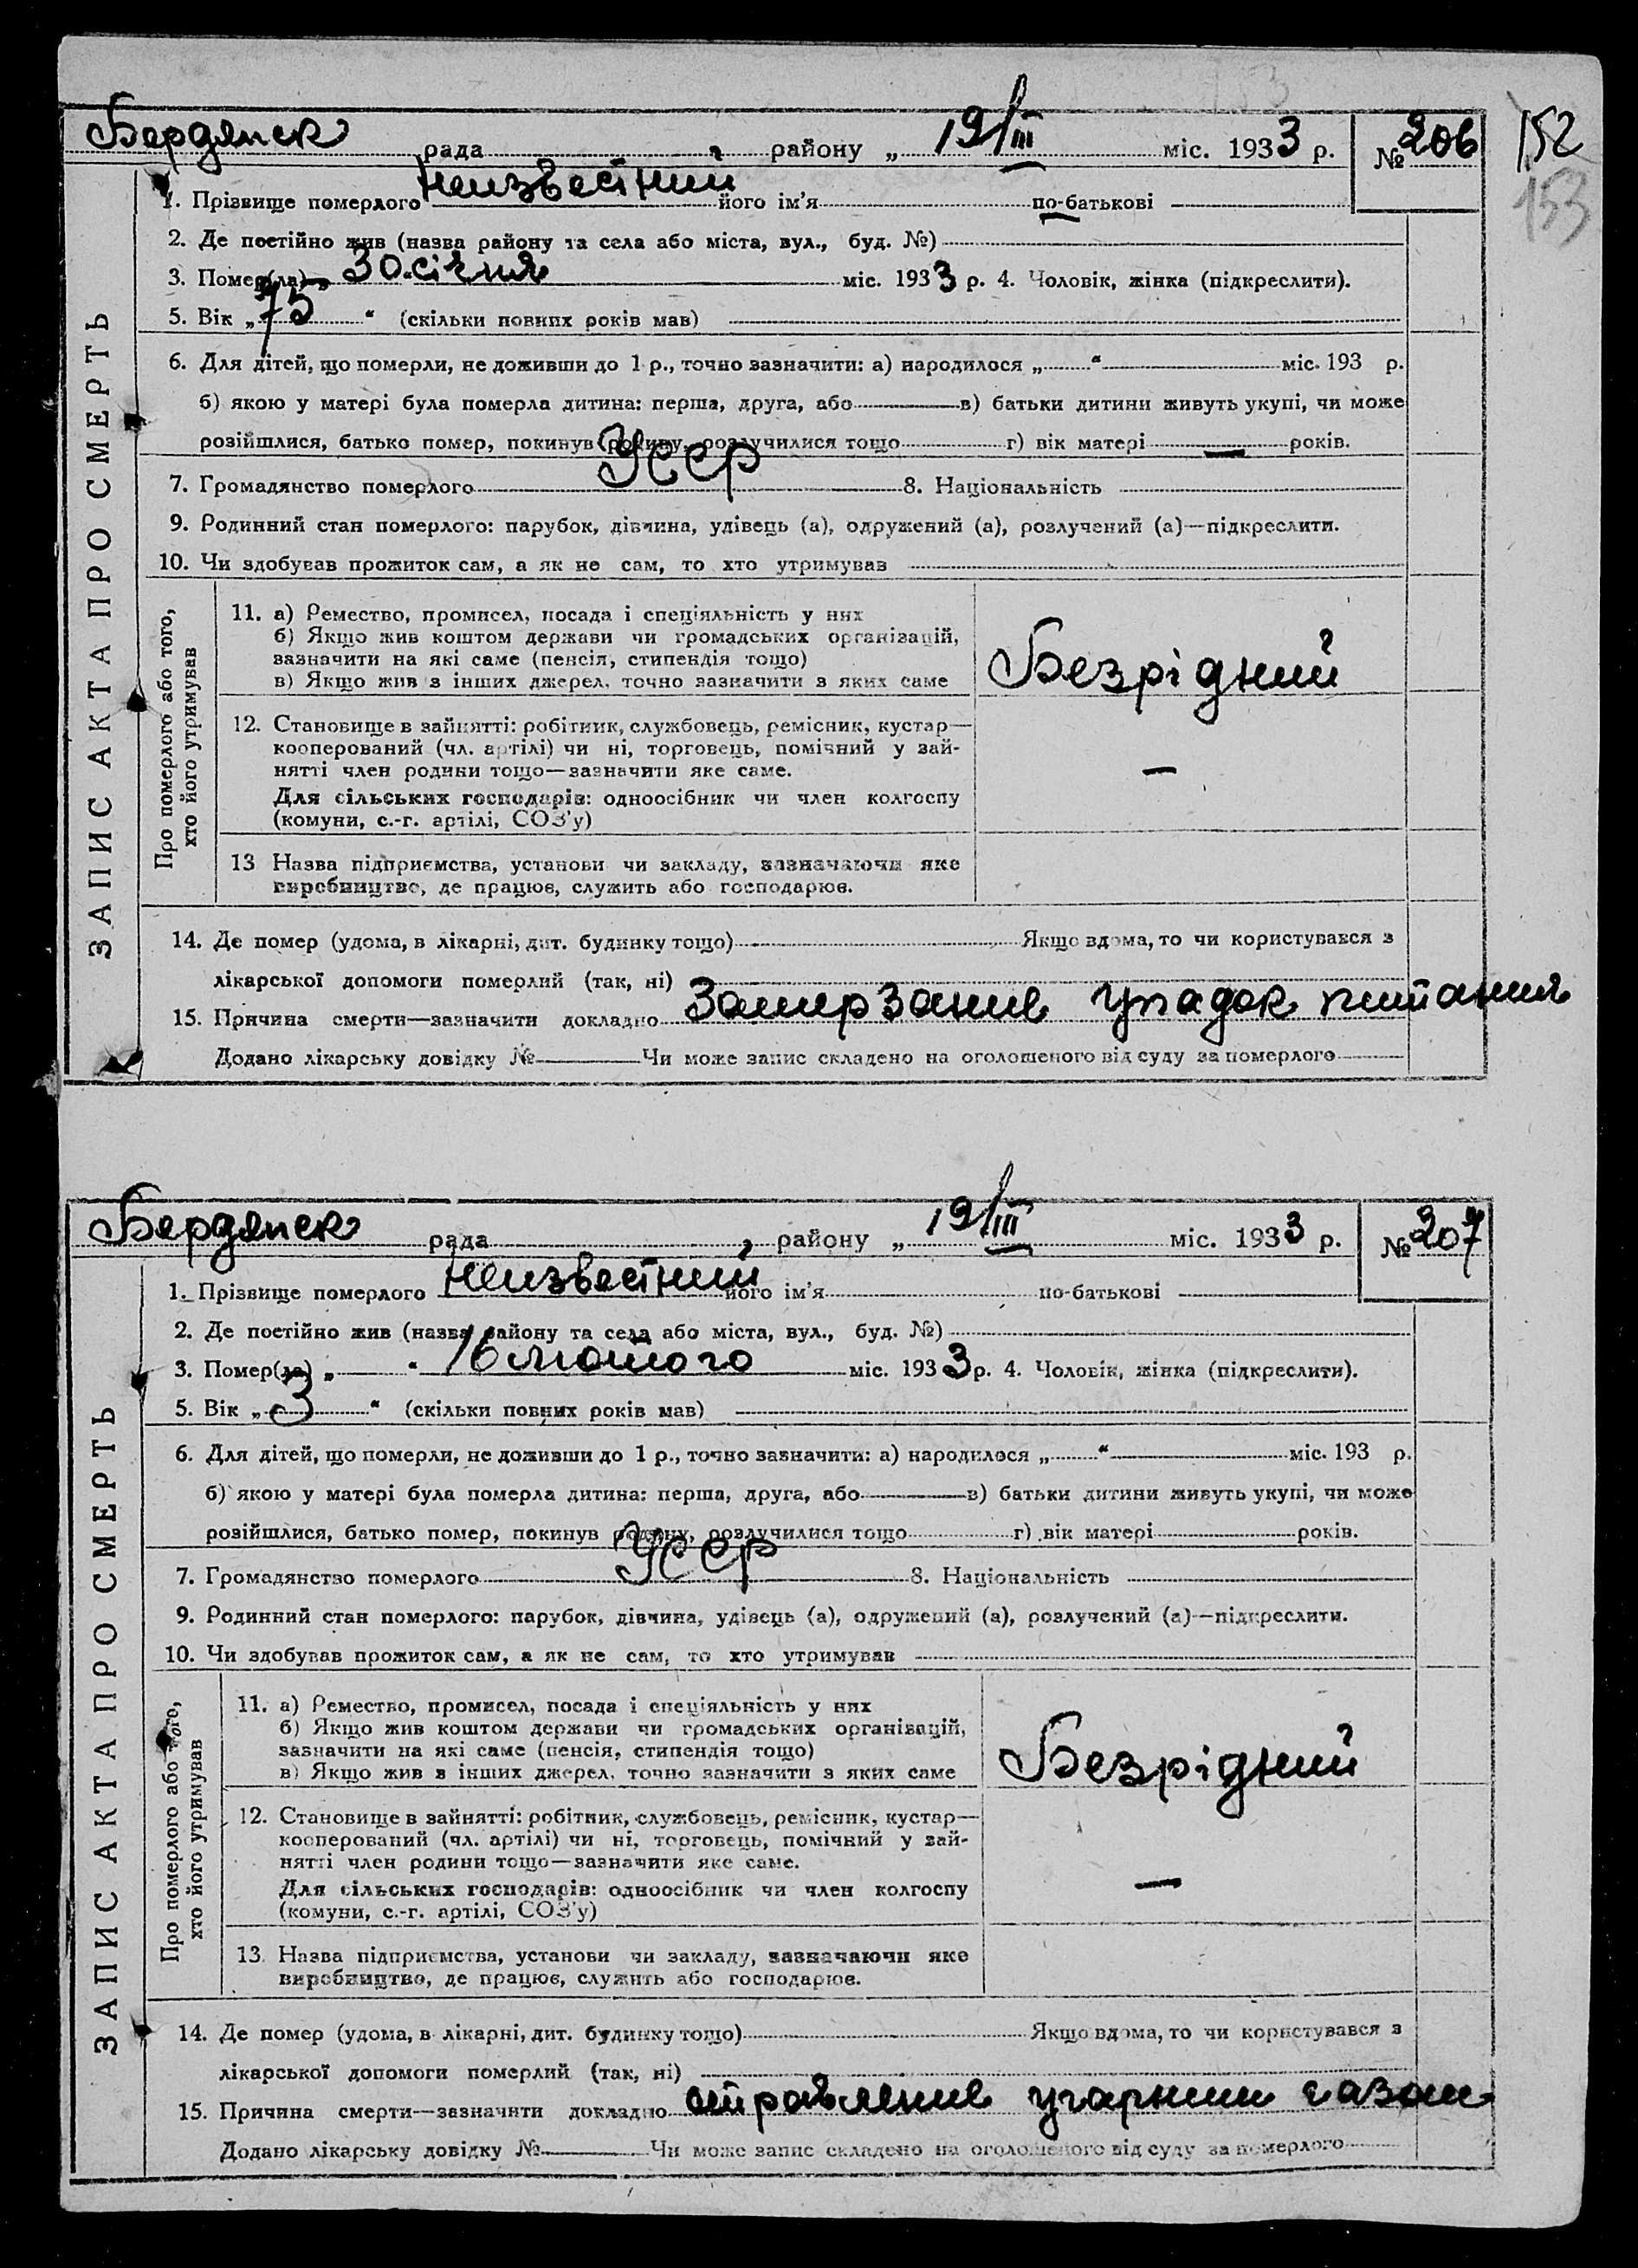 152
153
Бердянск рада , району „ 19/III міс. 1933 р. № 206
1. Прізвище померлого неизвестний його ім'я по-батькові
2. Де постійно жив (назва району та села або міста, вул., буд. №)
3. Помер(ла) „ 30 січня міс. 1933 р. 4. Чоловік, жінка (підкреслити).
5. Вік „ 75 “ (скільки повних років мав)
6. Для дітей, що померли, не доживши до 1 р., точно зазначити: а) народилося „ “ міс. 193 р.
б) якою у матері була померла дитина: перша, друга, або в) батьки дитини живуть укупі, чи може
розійшлися, батько помер, покинув родину, розлучилися тощо г) вік матері — років.
7. Громадянство померлого УССР 8. Національність
9. Родинний стан померлого: парубок, дівчина, удівець (а), одружений (а), розлучений (а)—підкреслити.
10. Чи здобував прожиток сам, а як не сам, то хто утримував
ЗАПИС АКТА ПРО СМЕРТЬ
Про померлого або того,
хто його утримував
11. а) Ремество, промисел, посада і спеціяльність у них
б) Якщо жив коштом держави чи громадських організацій,
зазначити на які саме (пенсія, стипендія тощо)
в) Якщо жив з інших джерел, точно зазначити з яких саме
Безрідний
12. Становище в зайнятті: робітник, службовець, ремісник, кустар—
кооперований (чл. артілі) чи ні, торговець, помічний у зай-
нятті член родини тощо—зазначити яке саме.
Для сільських господарів: одноосібник чи член колгоспу
(комуни, с.-г. артілі, СОЗ'у)
—
13 Назва підприємства, установи чи закладу, зазначаючи яке
виробництво, де працює, служить або господарює.
14. Де помер (удома, в лікарні, дит. будинку тощо) Якщо вдома, то чи користувався з
лікарської допомоги померлий (так, ні)
15. Причина смерти—зазначити докладно Замерзание упадок питания
Додано лікарську довідку № Чи може запис складено на оголошеного від суду за померлого
Бердянск рада , району „ 19/III міс. 1933 р. № 207
1. Прізвище померлого неизвестний його ім'я по-батькові
2. Де постійно жив (назва району та села або міста, вул., буд. №)
3. Помер(ла) „ “ 16 лютого міс. 1933 р. 4. Чоловік, жінка (підкреслити).
5. Вік „ 3 “ (скільки повних років мав)
6. Для дітей, що померли, не доживши до 1 р., точно зазначити: а) народилося „ “ міс. 193 р.
б) якою у матері була померла дитина: перша, друга, або в) батьки дитини живуть укупі, чи може
розійшлися, батько помер, покинув родину, розлучилися тощо г) вік матері років.
7. Громадянство померлого УССР 8. Національність
9. Родинний стан померлого: парубок, дівчина, удівець (а), одружений (а), розлучений (а)—підкреслити.
10. Чи здобував прожиток сам, а як не сам, то хто утримував
ЗАПИС АКТА ПРО СМЕРТЬ
Про померлого або того,
хто його утримував
11. а) Ремество, промисел, посада і спеціяльність у них
б) Якщо жив коштом держави чи громадських організацій,
зазначити на які саме (пенсія, стипендія тощо)
в) Якщо жив з інших джерел, точно зазначити з яких саме
Безрідний
12. Становище в зайнятті: робітник, службовець, ремісник, кустар—
кооперований (чл. артілі) чи ні, торговець, помічний у зай-
нятті член родини тощо—зазначити яке саме.
Для сільських господарів: одноосібник чи член колгоспу
(комуни, с.-г. артілі, СОЗ'у)
—
13. Назва підприємства, установи чи закладу, зазначаючи яке
виробництво, де працює, служить або господарює.
14. Де помер (удома, в лікарні, дит. будинку тощо) Якщо вдома, то чи користувався з
лікарської допомоги померлий (так, ні)
15. Причина смерти—зазначити докладно отравление угарним газом
Додано лікарську довідку № Чи може запис складено на оголошеного від суду за померлого